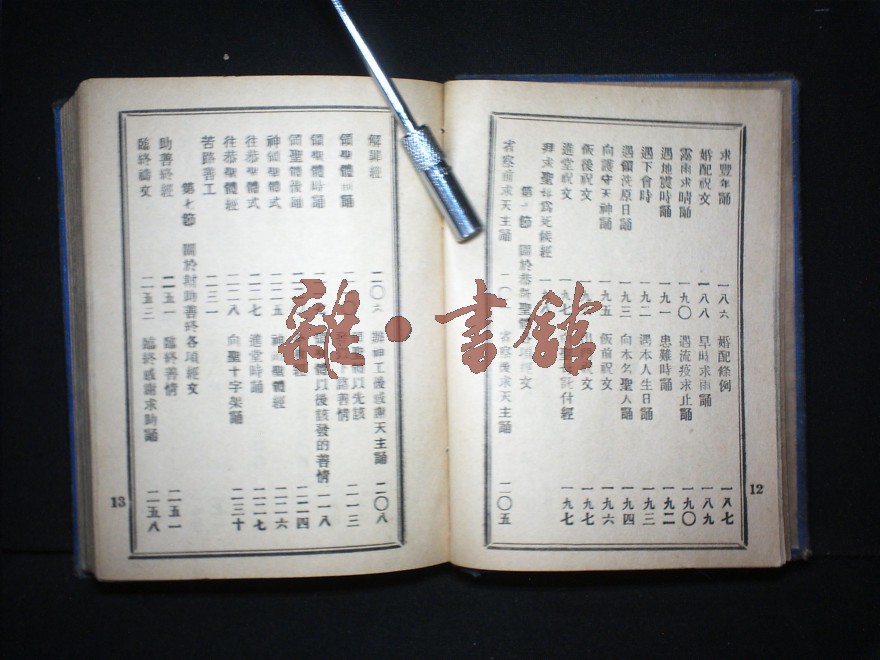 求豐年誦 一八六 婚配條例 一八七
婚配祝文 一八八 早時求雨誦 一八九
霪雨求晴誦 一九〇 遇流疫求止誦 一九〇
遇地震時誦 一九一 患難時誦 一九二
遇下會時 一九二 遇本人生日誦 一九三
遇領洗原日誦 一九三 向本名聖人誦 一九四
向護守天神誦 一九五 飯前祝文 一九六
飯後祝文 祝文 一九七
進堂祝文 一九七 託付經 一九七
拜求聖母為死候經
第六節 關於恭領聖 項經文
省察前求天主誦 二〇 省察後求天主誦 二〇五
12
解罪經 二〇六 辦神工後感謝天主誦 二〇八
領聖體前誦 聖體以先該
下諸善情 二一三
領聖體時誦 聖體以後該發的善情 二一八
領聖體後誦 二二四
神領聖體式 二二五 神領聖體經 二二六
往恭聖體式 二二七 進堂時誦 二二七
往恭聖體經 二二八 向聖十字架誦 二三十
苦路善工 二三一
第七節 關於財助善終各項經文
助善終經 二五一 臨終善情 二五一
臨終禱文 二五三 臨終感謝求助誦 二五八
13
雜·書館